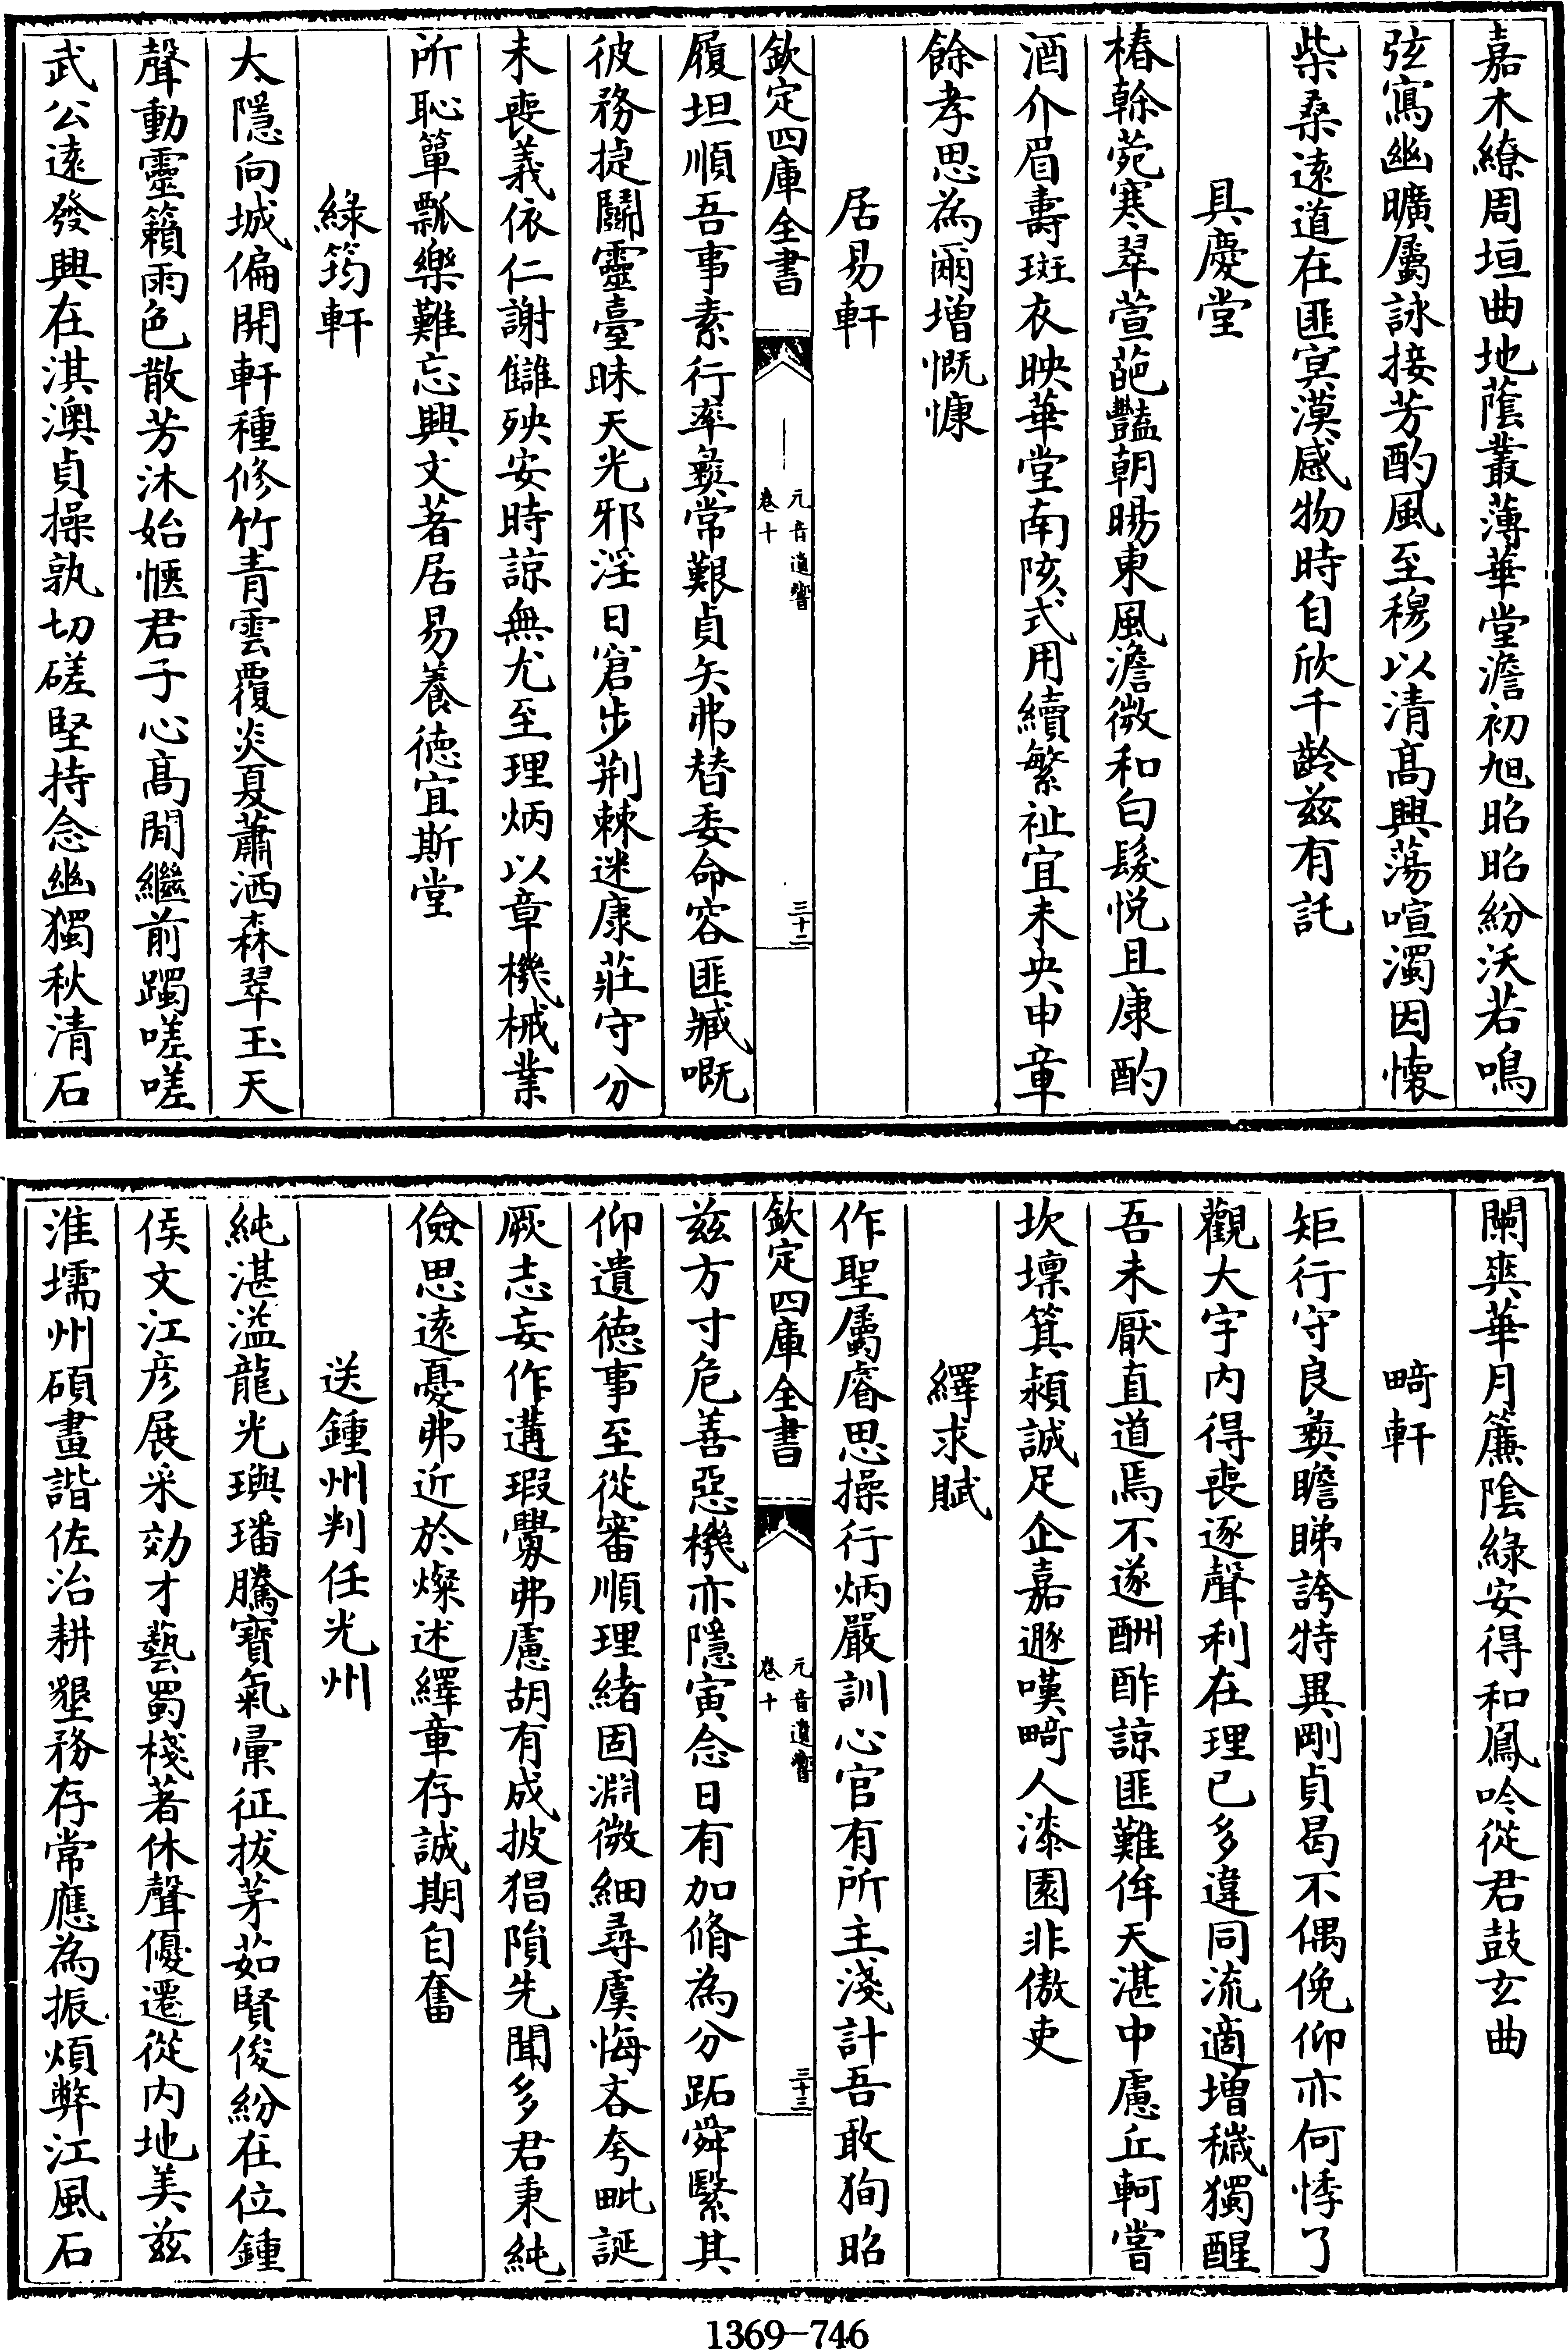 嘉木繚周垣曲地蔭叢薄華堂澹初旭昭昭紛沃若鳴
弦寫幽曠屬詠接芳酌風至穆以清髙興蕩喧濁因懷
柴桑遠道在匪㝠漠感物時自欣千齡兹有託
具慶堂
椿榦菀寒翠萱葩豔朝暘東風澹微和白髮悦且康酌
酒介眉壽斑衣映華堂南陔式用續繁祉宜未央申章
餘孝思為爾增慨慷
居易軒
欽定四庫全書
元音遺響
卷十
三十二
履坦順吾事素行率彛常艱貞矢弗替委命容匪臧嘅
彼務捷鬬靈臺昧天光邪淫日窘步荆棘迷康莊守分
未喪義依仁謝讎殃安時諒無尤至理炳以章機械業
所恥簞瓢樂難忘興文著居易養徳宜斯堂
綠筠軒
大隱向城偏開軒種修竹青雲覆炎夏蕭洒森翠玉天
聲動靈籟雨色散芳沐始愜君子心髙閒繼前躅嗟嗟
武公逺發興在淇澳貞操孰切磋堅持念幽獨秋清石
闌爽華月簾陰綠安得和鳳吟從君鼓玄曲
畸軒
矩行守良彛瞻睇誇特異剛貞曷不偶俛仰亦何悸了
觀大宇内得喪逐聲利在理已多違同流適增穢獨醒
吾未厭直道焉不遂酬酢諒匪難侔天湛中慮丘軻嘗
坎壈箕潁誠足企嘉遯嘆畸人漆園非傲吏
繹求賦
作聖屬睿思操行炳嚴訓心官有所主淺計吾敢狥昭
欽定四庫全書
元音遺響
卷十
三十三
兹方寸危善惡機亦隱寅念日有加脩為分跖舜繄其
仰遺徳事至從審順理緒固淵微細尋虞悔吝夸毗誕
厥志妄作遘瑕釁弗慮胡有成披猖隕先聞多君秉純
儉思遠憂弗近於燦述繹章存誠期自奮
送鍾州判任光州
純湛溢龍光璵璠騰寶氣彚征拔茅茹賢俊紛在位鍾
侯文江彦展采効才藝蜀棧著休聲優遷從内地美兹
淮壖州碩畫諧佐治耕墾務存常應為振煩弊江風石
1369—746